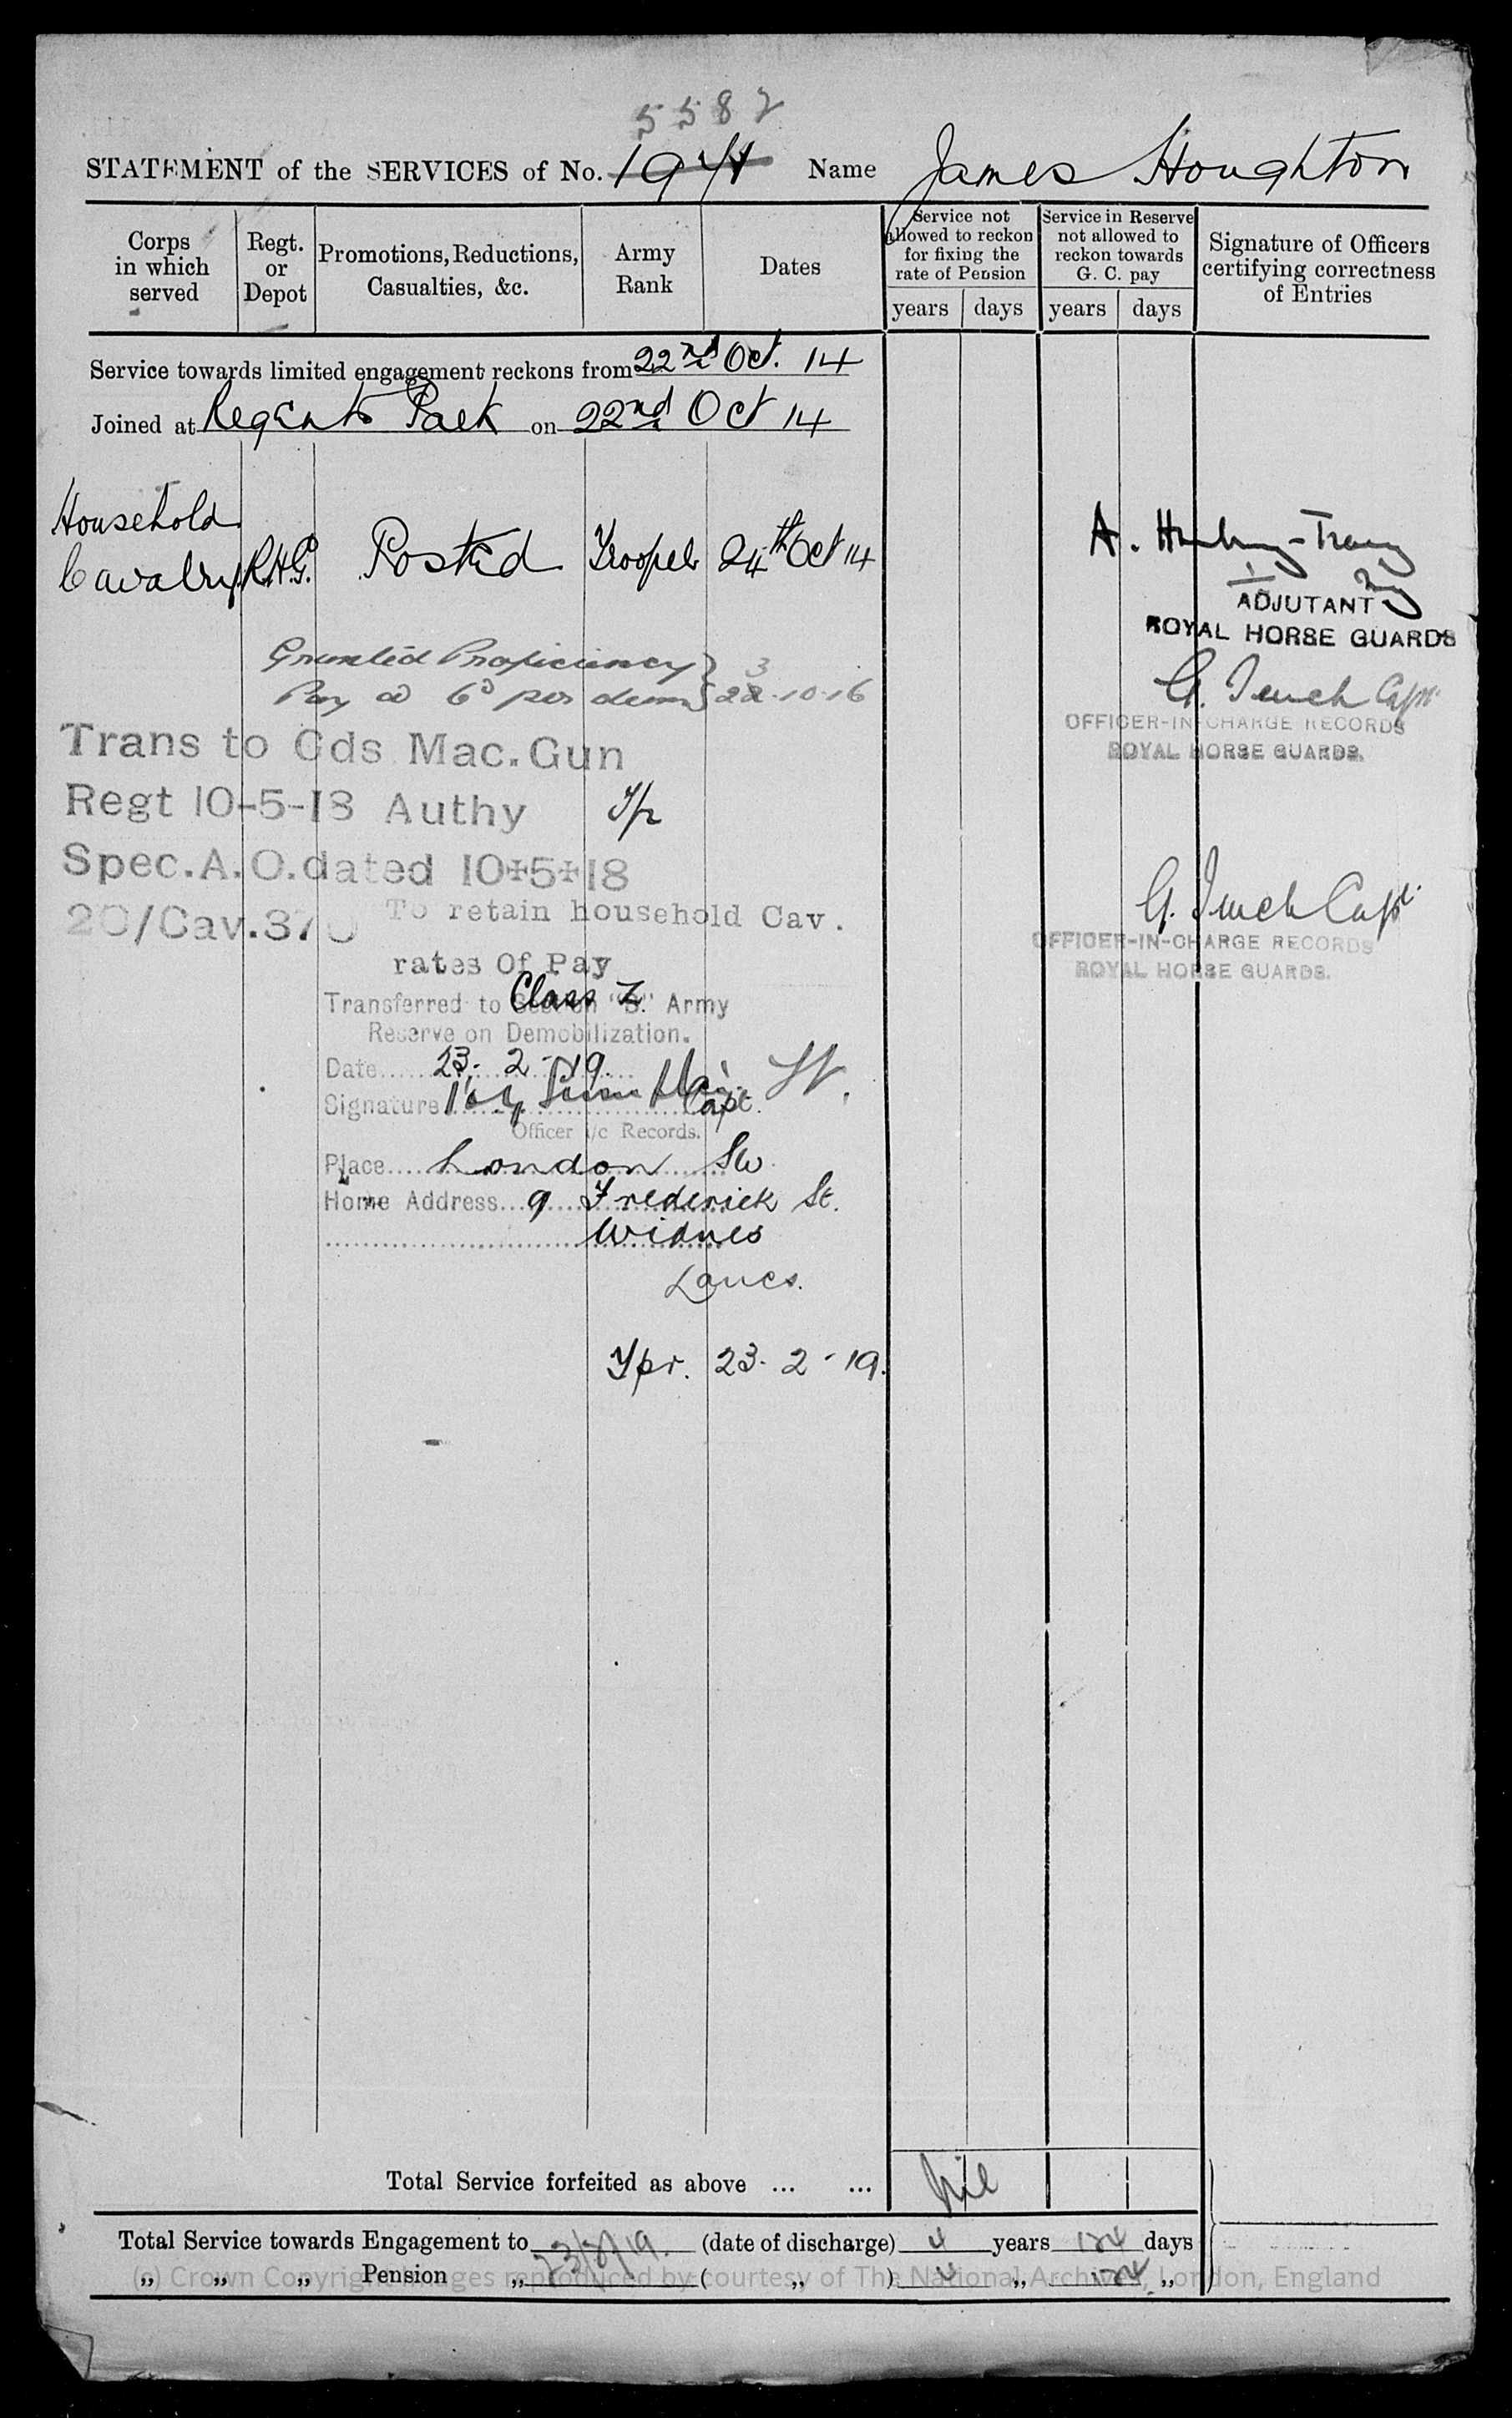 5582
STATEMENT of the SERVICES of No. 1941 Name James Houghton
Corps in which served
Regt. or Depot
Promotions, Reductions, Casualties, &c.
Army Rank
Dates
Service not allowed to reckon for fixing the rate of Pension
years days
Service in Reserve not allowed to reckon towards G. C. pay
years days
Signature of Officers certifying correctness of Entries
Service towards limited engagement reckons from 22nd Oct. 14
Joined at Regents Park on 22nd Oct 14
Household
Cavalry R.H.G. Posted Trooper 24th Oct 14
ADJUTANT
ROYAL HORSE GUARDS
Granted Proficiency 3
Pay @ 6d per diem 22-10-16
G. Tench Capt
OFFICER-IN-CHARGE RECORDS
ROYAL HORSE GUARDS.
Trans to Gds Mac. Gun
Regt 10-5-18 Authy Tpr
Spec. A. O. dated 10+5+18
20/Cav. 370 To retain household Cav.
rates Of Pay
G. Tench Capt
OFFICER-IN-CHARGE RECORDS
ROYAL HORSE GUARDS.
Transferred to Class Z. Army
Reserve on Demobilization.
Date 23. 2-19
Signature Capt.
Officer i/c Records.
Place London SW.
Home Address 9 Frederick St.
Widnes
Lancs.
Tpr. 23-2-19.
Total Service forfeited as above ... ... Nil
Total Service towards Engagement to 23/2/19. (date of discharge) 4 years 124 days
„ „ „ Pension „ ( „ ) 4 „ 124 „
(c) Crown Copyright Images reproduced by courtesy of The National Archives, London, England